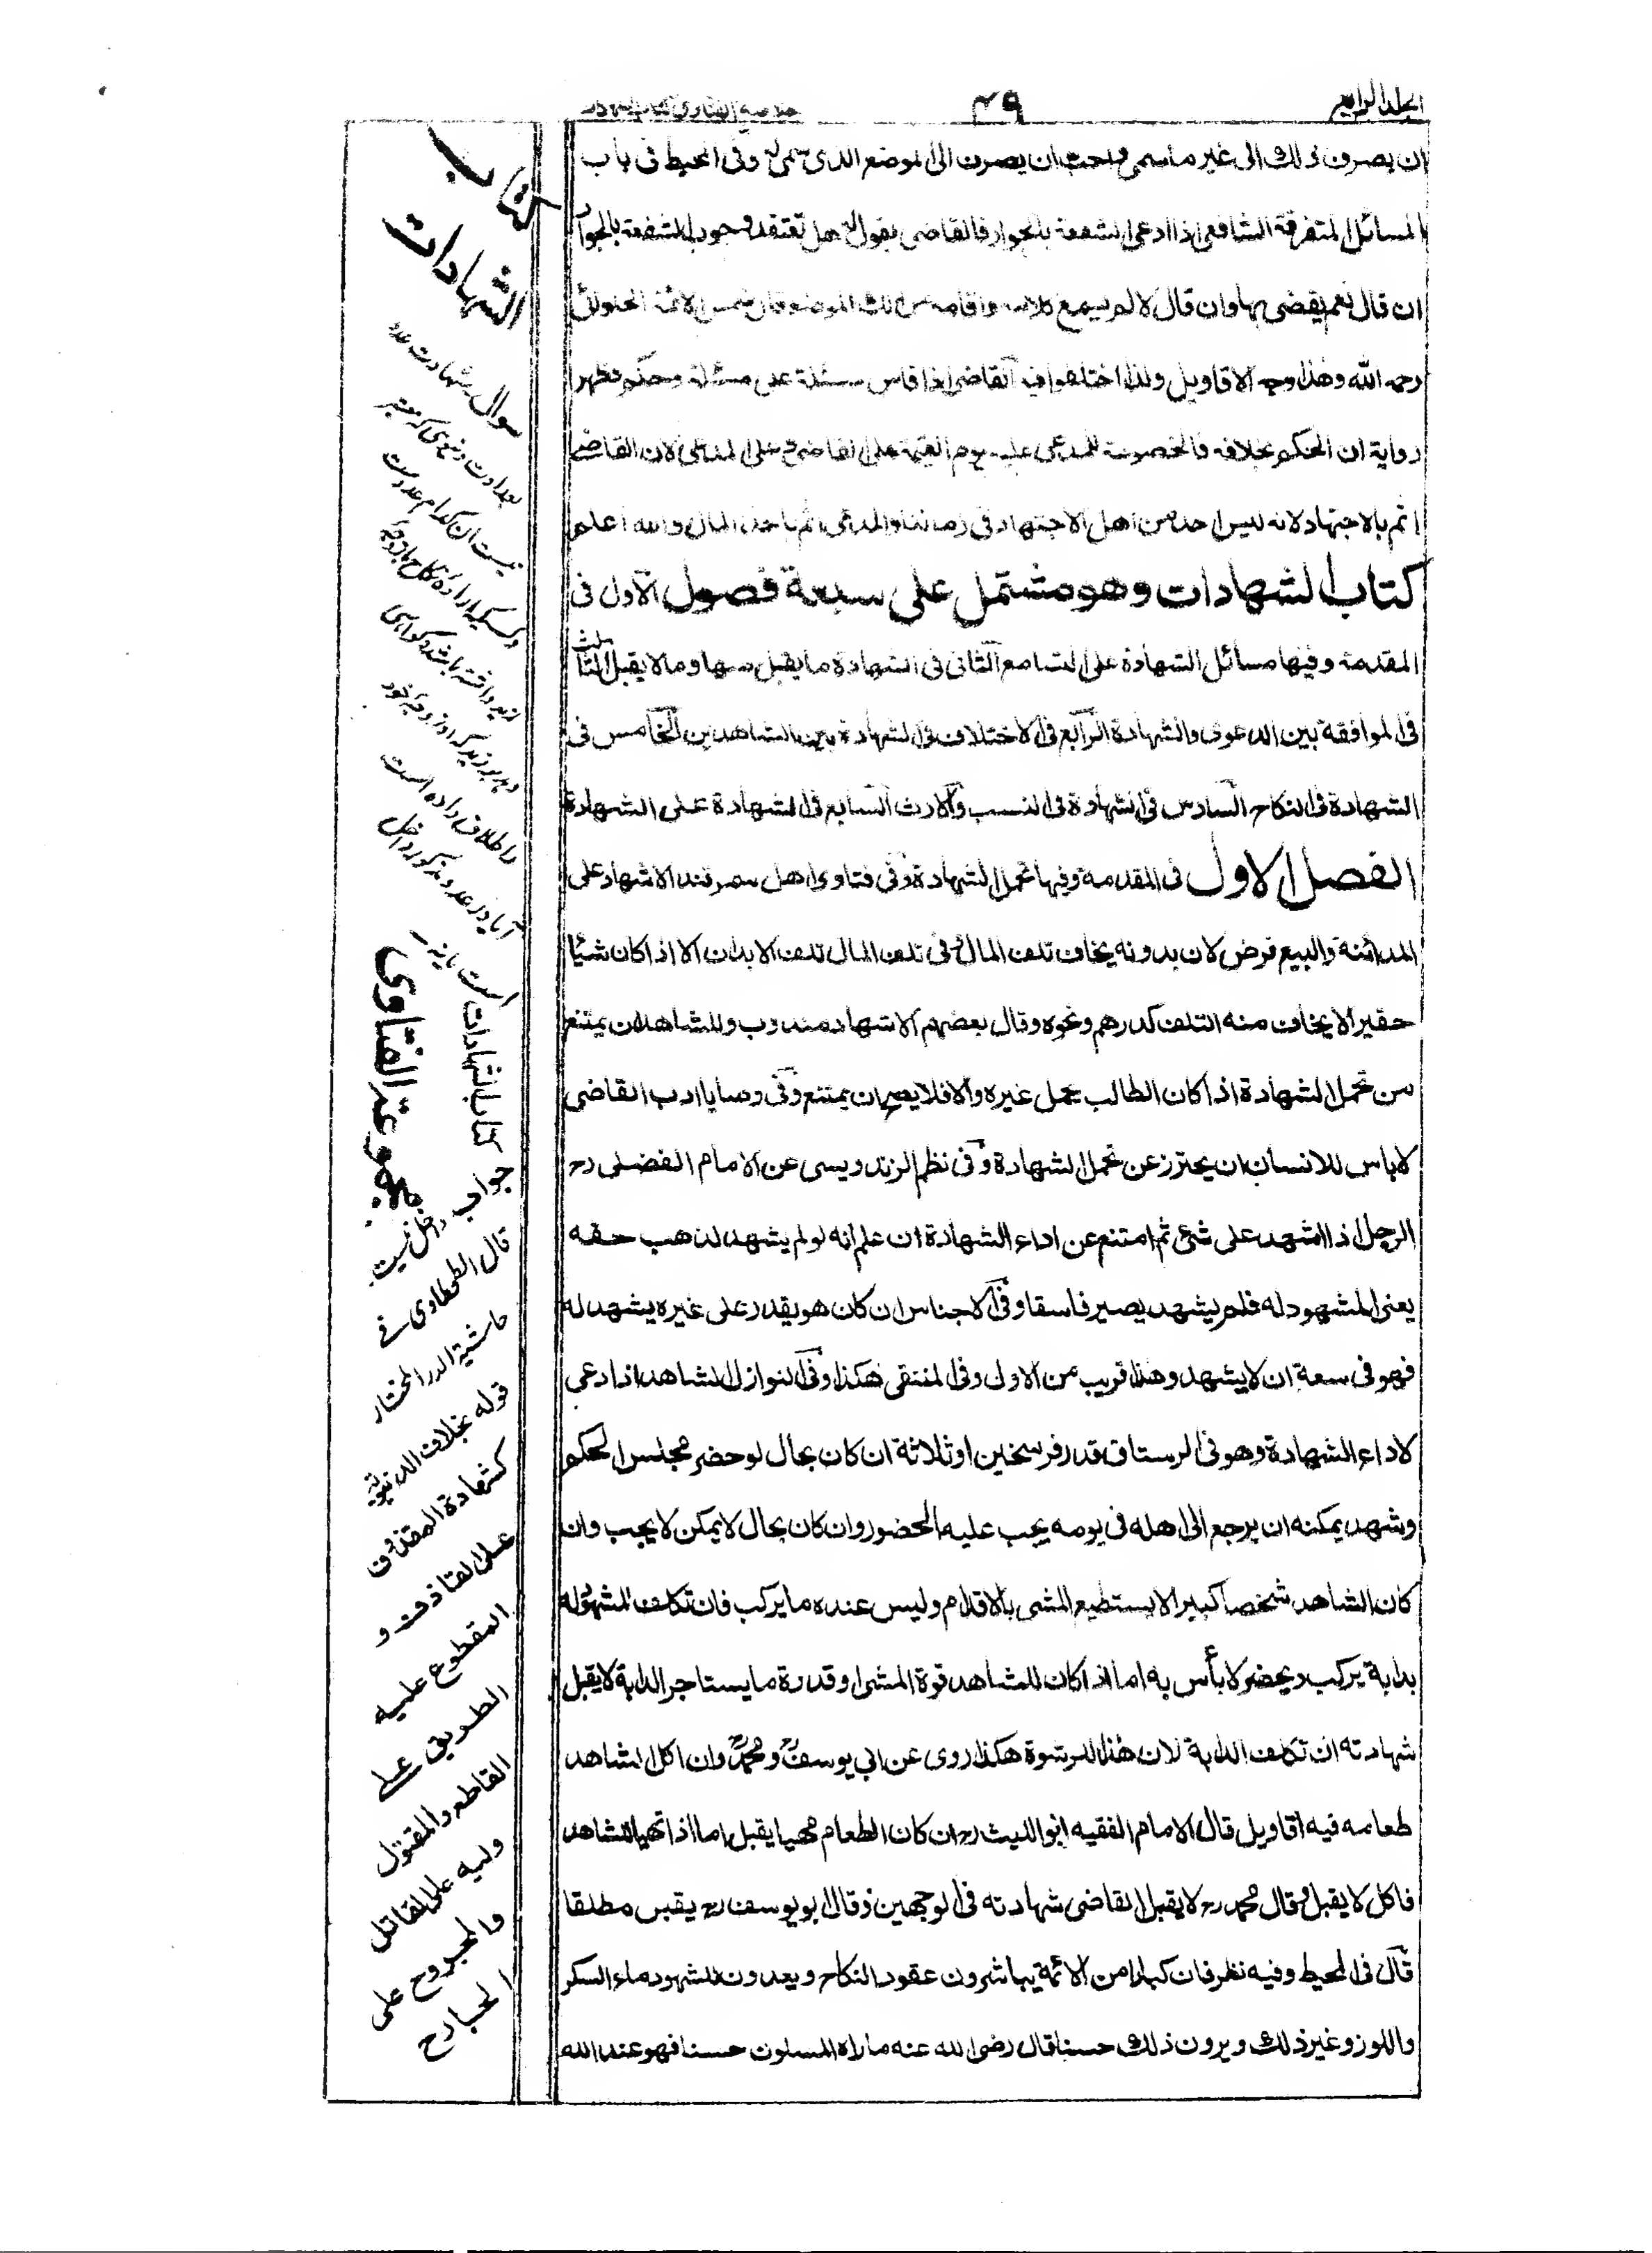 الجلد الرابع
٤٩
خلاصة الفتاوى كتاب الشهادات
ان يصرف ذلك الى غير ما سمى ويجب ان يصرف الى الموضع الذى سمى له وفى المحيط فى باب
المسائل المتفرقة الشافعى اذا ادعى الشفعة بالجوار فالقاضى يقول له هل تعتقد وجوب الشفعة بالجوار
ان قال نعم يقضى بها وان قال لا لم يسمع كلامه واقامه من ذلك الموضع وقال شمس الائمة الحلوائى
رحمه الله وهذا وجه الاقاويل ولذا اختلفوا فيه القاضى اذا قاس مسئلة على مسئلة وحكم فظهر
رواية ان الحكم بخلافه فالخصومة للمدعى عليه يوم القيمة على القاضى وعلى المدعى لان القاضى
اثم بالاجتهاد لانه ليس احد من اهل الاجتهاد فى زماننا والمدعى اثم باخذ المال والله اعلم
كتاب الشهادات وهو مشتمل على سبعة فصول الاول فى
المقدمة وفيها مسائل الشهادة على التسامع الثانى فى الشهادة ما يقبل منها وما لا يقبل الثالث
فى الموافقة بين الدعوى والشهادة الرابع فى الاختلاف فى الشهادة بين الشاهدين الخامس فى
الشهادة فى النكاح السادس فى الشهادة فى النسب والارث السابع فى الشهادة على الشهادة
الفصل الاول فى المقدمة وفيها تحمل الشهادة وفى فتاوى اهل سمرقند الاشهاد على
المداينة والبيع فرض لان بدونه يخاف تلف المال وفى تلف المال تلف الابدان الا اذا كان شيئا
حقيرا لا يخاف منه التلف كدرهم ونحوه وقال بعضهم الاشهاد مندوب وللشاهد ان يمتنع
من تحمل الشهادة اذا كان الطالب يحمل غيره والا فلا يصح ان يمتنع وفى وصايا ادب القاضى
لا باس للانسان ان يحترز عن تحمل الشهادة وفى نظم الزندويسى عن الامام الفضلى رح
الرجل اذا اشهد على شئ ثم امتنع عن اداء الشهادة ان علم انه لو لم يشهد لذهب حقه
يعنى المشهود له فلم يشهد يصير فاسقا وفى الاجناس ان كان هو يقدر على غيره يشهد له
فهو فى سعة ان لا يشهد وهذا قريب من الاول وفى المنتقى هكذا وفى النوازل الشاهد اذا دعى
لاداء الشهادة وهو فى الرستاق قدر فرسخين او ثلاثة ان كان بحال لو حضر مجلس الحكم
وشهد يمكنه ان يرجع الى اهله فى يومه يجب عليه الحضور وان كان بحال لا يمكن لا يجب وان
كان الشاهد شخصا كبيرا لا يستطيع المشى بالاقدام وليس عنده ما يركب فان تكلف المشهود له
بدابة يركب ويحضر لا بأس به اما اذا كان للشاهد قوة المشى او قدرة ما يستاجر الدابة لا يقبل
شهادته ان تكلف الدابة لان هذا الرشوة هكذا روى عن ابى يوسف رح ومحمد رح وان اكل الشاهد
طعامه فيه اقاويل قال الامام الفقيه ابو الليث رح ان كان الطعام مهيا يقبل اما اذا تهيا للشاهد
فاكل لا يقبل وقال محمد رح لا يقبل القاضى شهادته فى الوجهين وقال ابو يوسف رح يقبل مطلقا
قال فى المحيط وفيه نظر فان كبارا من الائمة يباشرون عقود النكاح ويعدون للشهود ماء السكر
واللوز وغير ذلك ويرون ذلك حسنا قال رضى الله عنه ما راه المسلمون حسنا فهو عند الله
كتاب
الشهادات
سوال شهادت عدو
بعداوت دنيوى كه معتبر
نيست ان كدام عدوست
وكسيكه اراده نكاح با زوجه
زيد داشته باشد وگواهى
دهد بر زيد كه او زوجه خود
را طلاق داده است
آيا در عدو مذكور داخل
است يا نه
كتاب الشهادات
مجموعة الفتاوى
جواب داخل نيست
قال الطحطاوى فى
حاشية الدر المختار
قوله بخلاف الدنيوية
كشهادة المقذوف
على القاذف و
المقطوع عليه
الطريق على
القاطع والمقتول
وليه على القاتل
والمجروح على
الجارح